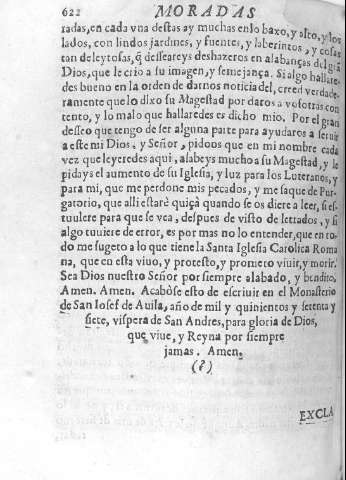 622 MORADAS
radas, en cada vna destas ay muchas en lo baxo, y alto, y los
lados, con lindos jardines, y fuentes, y laberintos, y cosas
tan deleytosas, q̃ desseareys deshazeros en alabanças del grã
Dios, que le crio a su imagen, y semejança. Si algo hallare-
des bueno en la orden de darnos noticia del, creed verdade-
ramente que lo dixo su Magestad por daros a vosotras con
tento, y lo malo que hallaredes es dicho mio. Por el gran
desseo que tengo de ser alguna parte para ayudaros a seruir
a este mi Dios, y Señor, pidoos que en mi nombre cada
vez que leyeredes aqui, alabeys mucho a su Magestad, y le
pidays el aumento de su Iglesia, y luz para los Luteranos, y
para mi, que me perdone mis pecados, y me saque de Pur-
gatorio, que alli estarè quiçà quando se os diere a leer, si es-
tuuiere para que se vea, despues de visto de letrados, y si
algo tuuiere de error, es por mas no lo entender, que en to-
do me sugeto a lo que tiene la Santa Iglesia Catolica Roma
na, que en esta viuo, y protesto, y prometo viuir, y morir.
Sea Dios nuestro Señor por siempre alabado, y bendito,
Amen. Amen. Acabòse esto de escriuir en el Monasterio
de San Iosef de Auila, año de mil y quinientos y setenta y
siete, vispera de San Andres, para gloria de Dios,
que viue, y Reyna por siempre
jamas. Amen.
(?)
EXCLA